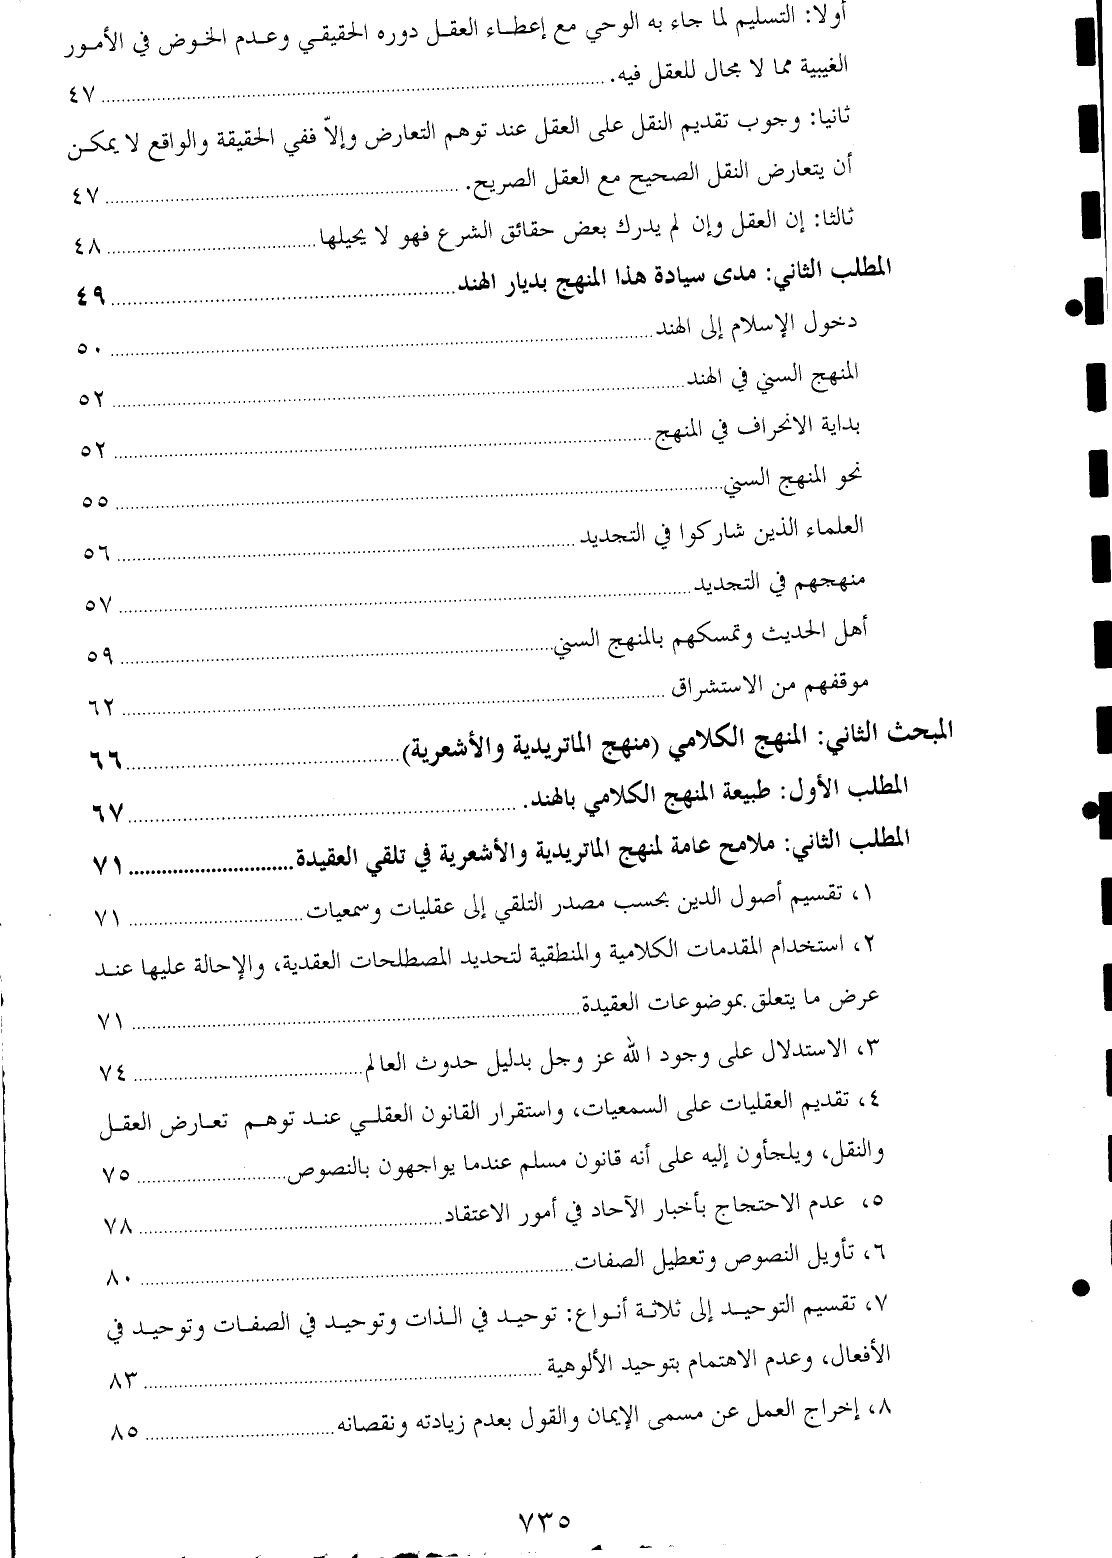 أولا: التسليم لما جاء به الوحي مع إعطاء العقل دوره الحقيقي وعدم الخوض في الأمور
الغيبية مما لا مجال للعقل فيه. ٤٧
ثانيا: وجوب تقديم النقل على العقل عند توهم التعارض وإلاّ ففي الحقيقة والواقع لا يمكن
أن يتعارض النقل الصحيح مع العقل الصريح. ٤٧
ثالثا: إن العقل وإن لم يدرك بعض حقائق الشرع فهو لا يحيلها ٤٨
المطلب الثاني: مدى سيادة هذا المنهج بديار الهند ٤٩
دخول الإسلام إلى الهند ٥٠
المنهج السني في الهند ٥٢
بداية الانحراف في المنهج ٥٢
نحو المنهج السني ٥٥
العلماء الذين شاركوا في التجديد ٥٦
منهجهم في التجديد ٥٧
أهل الحديث وتمسكهم بالمنهج السني ٥٩
موقفهم من الاستشراق ٦٢
المبحث الثاني: المنهج الكلامي (منهج الماتريدية والأشعرية) ٦٦
المطلب الأول: طبيعة المنهج الكلامي بالهند. ٦٧
المطلب الثاني: ملامح عامة لمنهج الماتريدية والأشعرية في تلقي العقيدة ٧١
١، تقسيم أصول الدين بحسب مصدر التلقي إلى عقليات وسمعيات ٧١
٢، استخدام المقدمات الكلامية والمنطقية لتحديد المصطلحات العقدية، والإحالة عليها عند
عرض ما يتعلق بموضوعات العقيدة ٧١
٣، الاستدلال على وجود الله عز وجل بدليل حدوث العالم ٧٤
٤، تقديم العقليات على السمعيات، واستقرار القانون العقلي عند توهم تعارض العقل
والنقل، ويلجأون إليه على أنه قانون مسلم عندما يواجهون بالنصوص ٧٥
٥، عدم الاحتجاج بأخبار الآحاد في أمور الاعتقاد ٧٨
٦، تأويل النصوص وتعطيل الصفات ٨٠
٧، تقسيم التوحيد إلى ثلاثة أنواع: توحيد في الذات وتوحيد في الصفات وتوحيد في
الأفعال، وعدم الاهتمام بتوحيد الألوهية ٨٣
٨، إخراج العمل عن مسمى الإيمان والقول بعدم زيادته ونقصانه ٨٥
٧٣٥